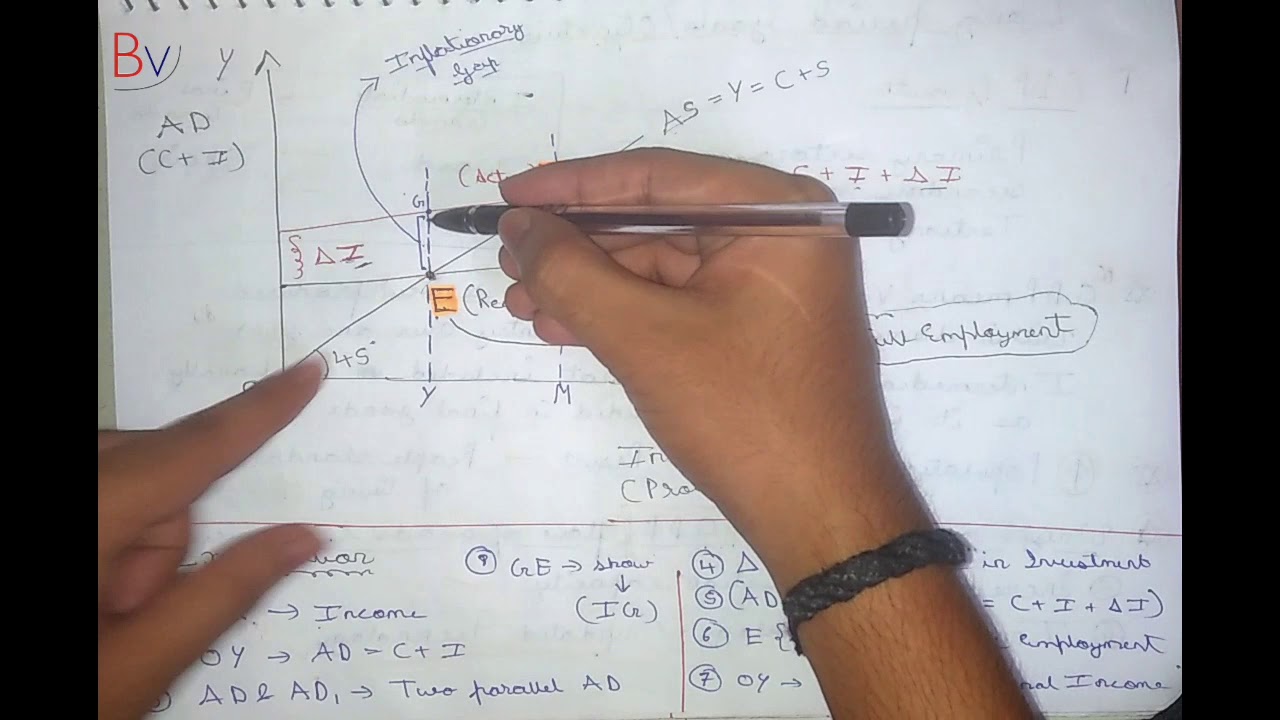 BV
Y
Inflationary
Gap
AD
(C+I)
AS = Y = C+S
(Act
C + I + ΔI
G
ΔI
E (Re
Full Employment
45°
Y
M
In
(Pro
→ Income
OY → AD = C+I
AD & AD₁ → Two parallel AD
⑨ GE → show
↓
(IG)
④ Δ in Investment
⑤ (AD = C+I+ΔI)
⑥ E { Employment
⑦ OY → nal Income